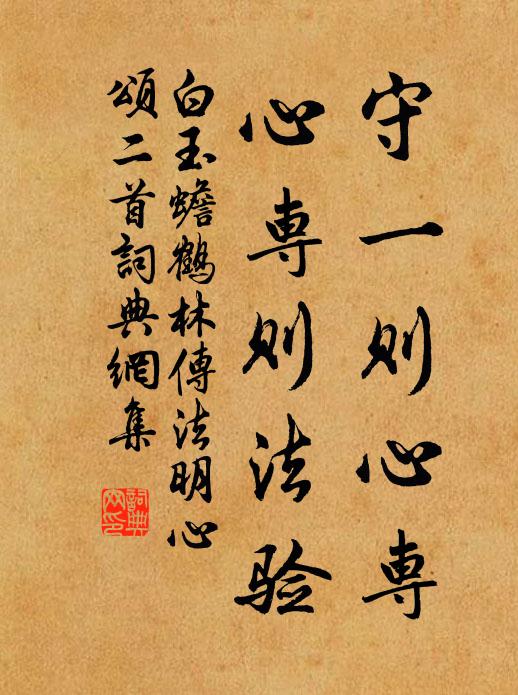 守一则心専
心専则法验
白玉蟾鶴林傳法明心
頌二首詞典網集
詞典
网印